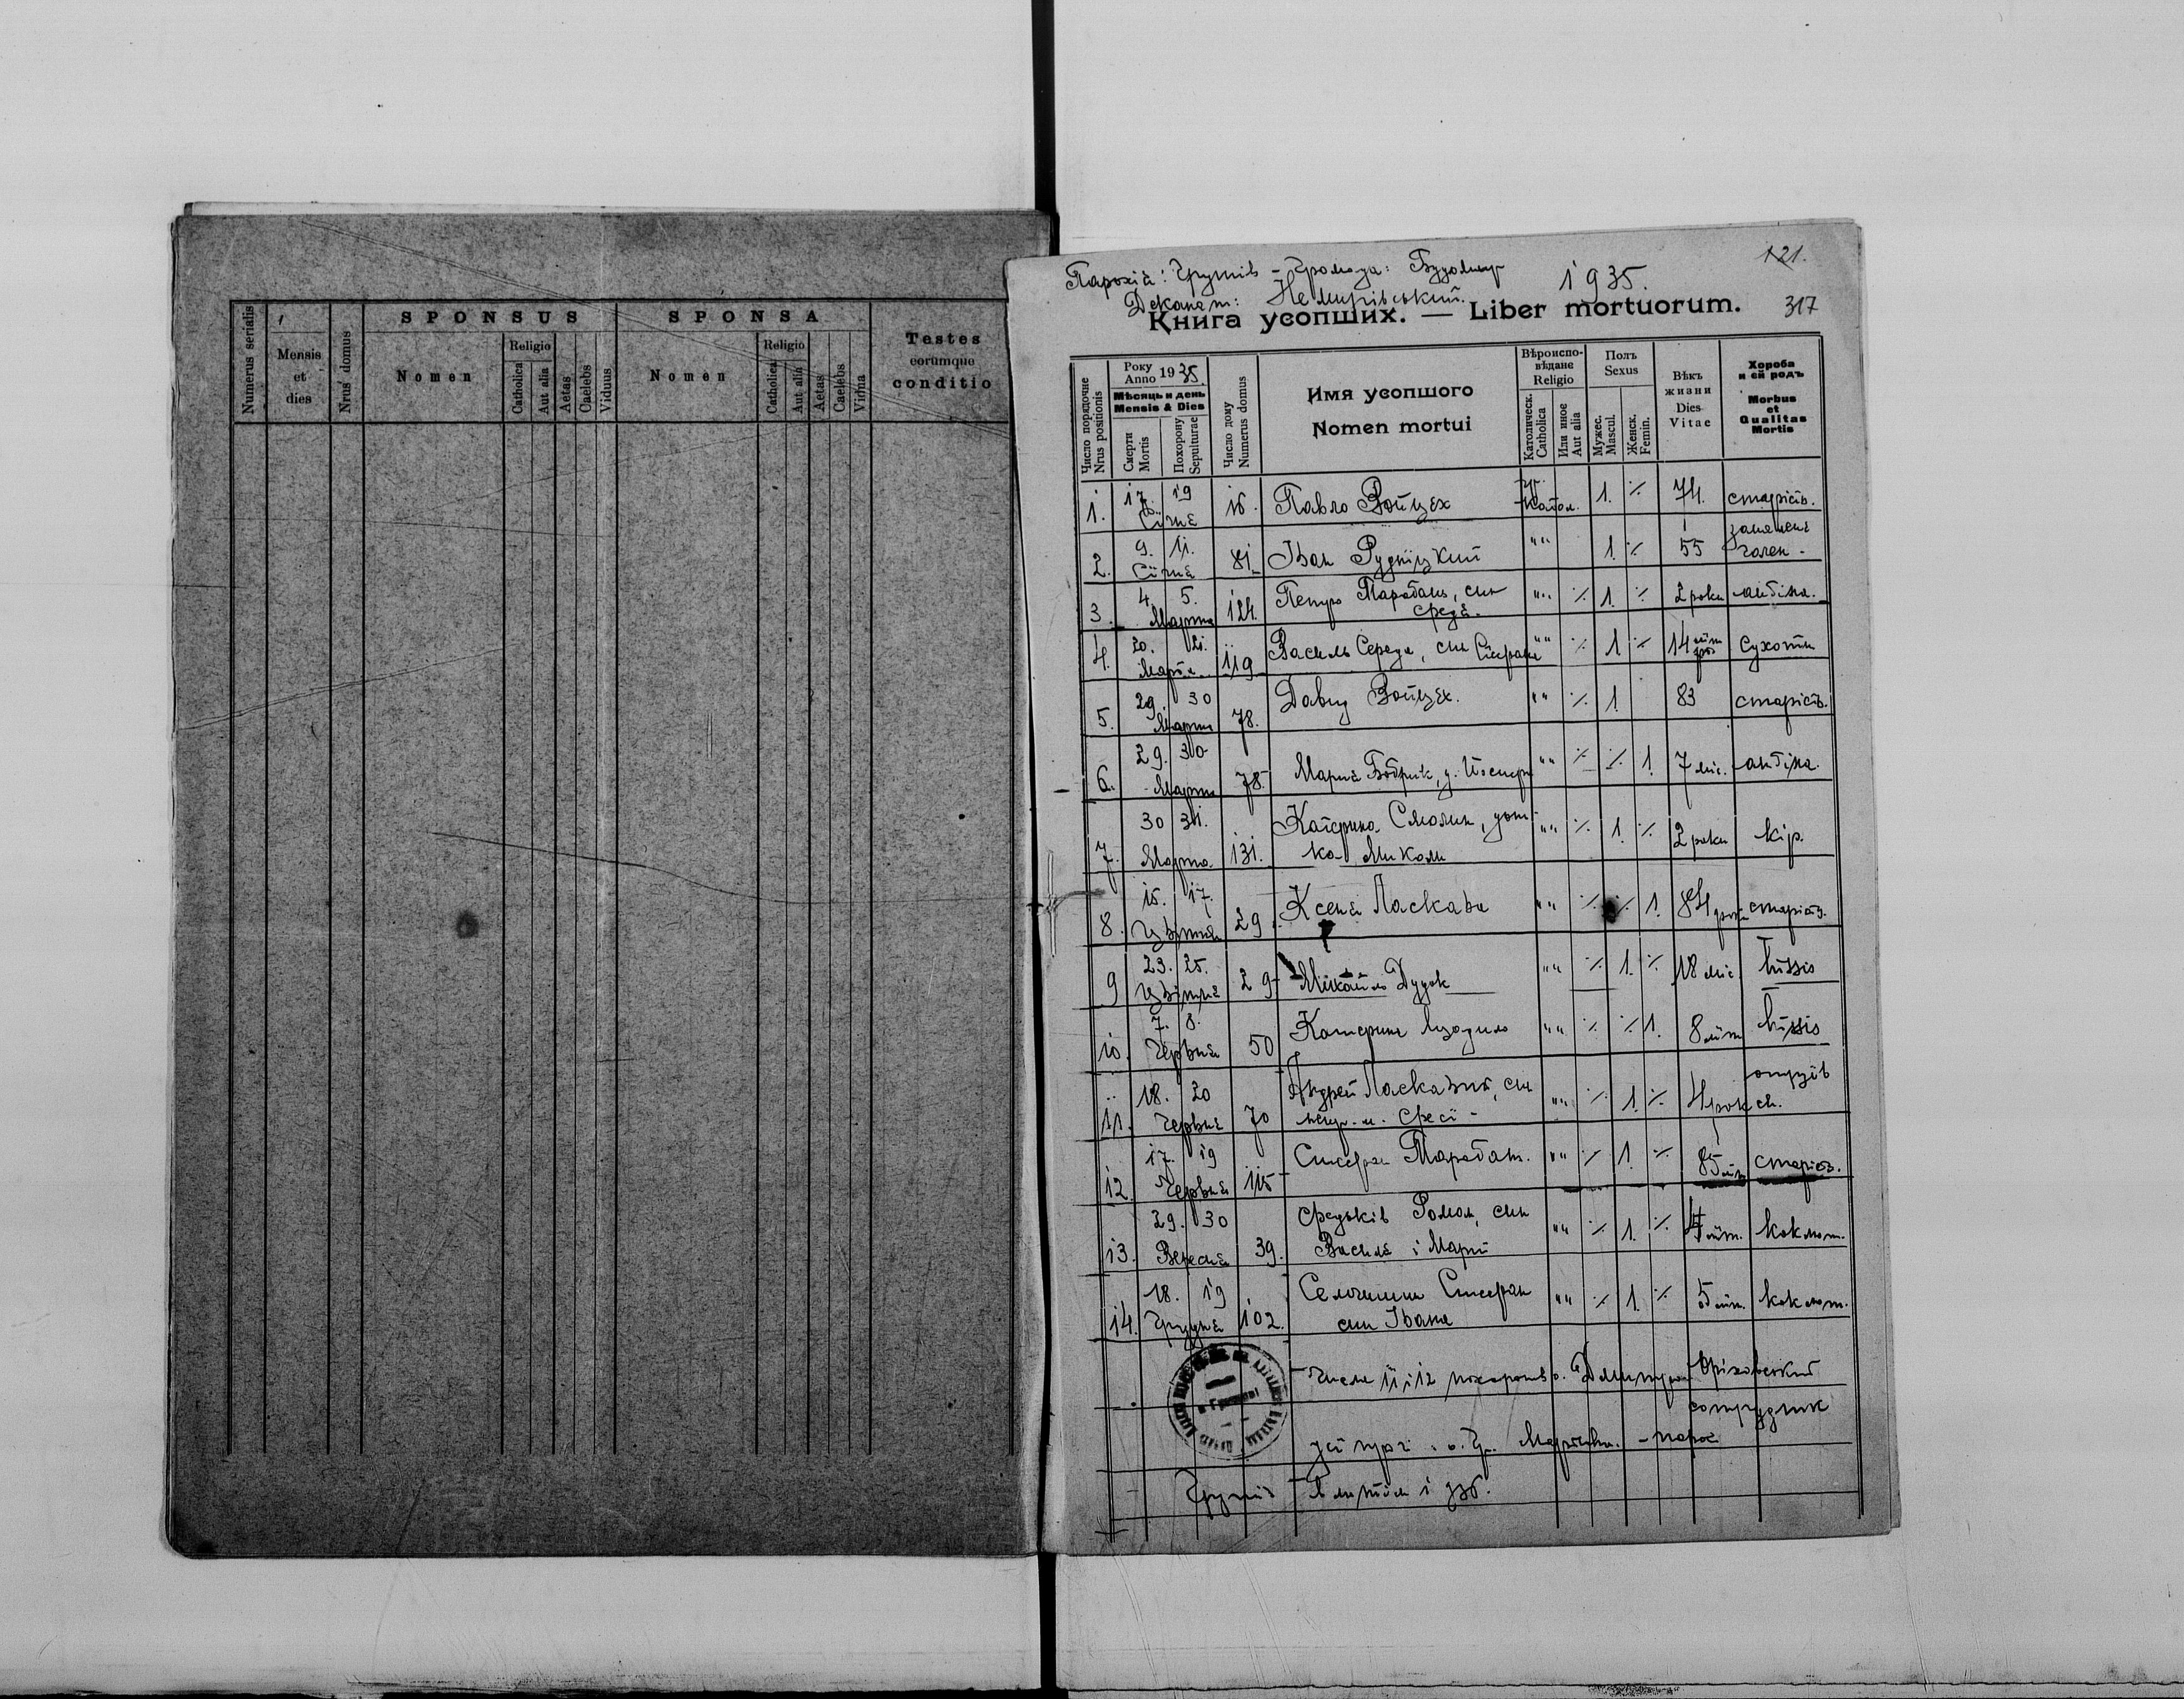 Numerus serialis
Mensis
et
dies
Nrus domus
SPONSUS
Nomen
Religio
Catholica
Aut alia
Aetas
Caelebs
Viduus
SPONSA
Nomen
Religio
Catholica
Aut alia
Aetas
Caelebs
Testes
eorumque
conditio
121.
Парохія: Грушів - Громада:
1935.
Деканат: Немирівський.
317
Книга усопших. — Liber mortuorum.
Число порядочне
Nrus positionis
Року
Anno 1935.
Мѣсяць и день
Mensis & Dies
Смерти
Mortis
Похорону
Sepulturae
Число дому
Numerus domus
Имя усопшого
Nomen mortui
Вѣроиспо-
вѣдане
Religio
Католическ.
Catholica
Или иное
Aut alia
Полъ
Sexus
Мужес.
Mascul.
Женск.
Femin.
Вѣкъ
жизни
Dies
Vitae
Хороба
и єй родъ
Morbus
et
Qualitas
Mortis
1. 17. 19 Січня 16. Павло Войцех гр. катол. 1. ٪ 74. старість.
2. 9. 11. Січня 81. Іван Рудніцкий "" 1. ٪ 55
3. 4. 5. Марта 124. Петро Тарабан, син "" ٪ 1. ٪ 2 роки
4. 20. 21. Марта 119 Василь Середа, син Стефана "" ٪ 1 ٪ 14 літ сухоти
5. 29. 30 Марта 78. Давид Войцех. "" ٪ 1. 83 старість.
6. 29. 30 Марта 78. Марія "" ٪ ٪ 1. 7 міс.
7. 30 31. Марта 131. Катерина Смолин, донь-
ка Миколи "" ٪ 1. ٪ 2 роки кір.
8. 15. 17. Цвітня 29. Ксеня Ласкава "" ٪ ٪ 1. 84 роки старість.
9 23. 25. Цвітня 29 Михайло Дудок "" ٪ 1. ٪ 18 міс. tussis
10. 7. 8. Червня 50 Катерина "" ٪ ٪ 1. 8 літ tussis
11. 18. 20 Червня 70 Андрей Ласкавий, син "" ٪ 1. ٪ 4 роки
12. 17. 19 Червня 115 Стефан Тарабан. "" ٪ 1. ٪ 85 літ старість.
13. 29. 30 Вересня 39. Федьків Роман, син
Василя і Марії "" ٪ 1. ٪ літ. коклюш.
14. 18. 19 Грудня 102. Стефан
син Івана "" ٪ 1. ٪ 5 літ. коклюш.
Число 11 і 12 похоронив о. Дмитро Оріховський
сотрудник
усі прочі о. - парох
Грушів